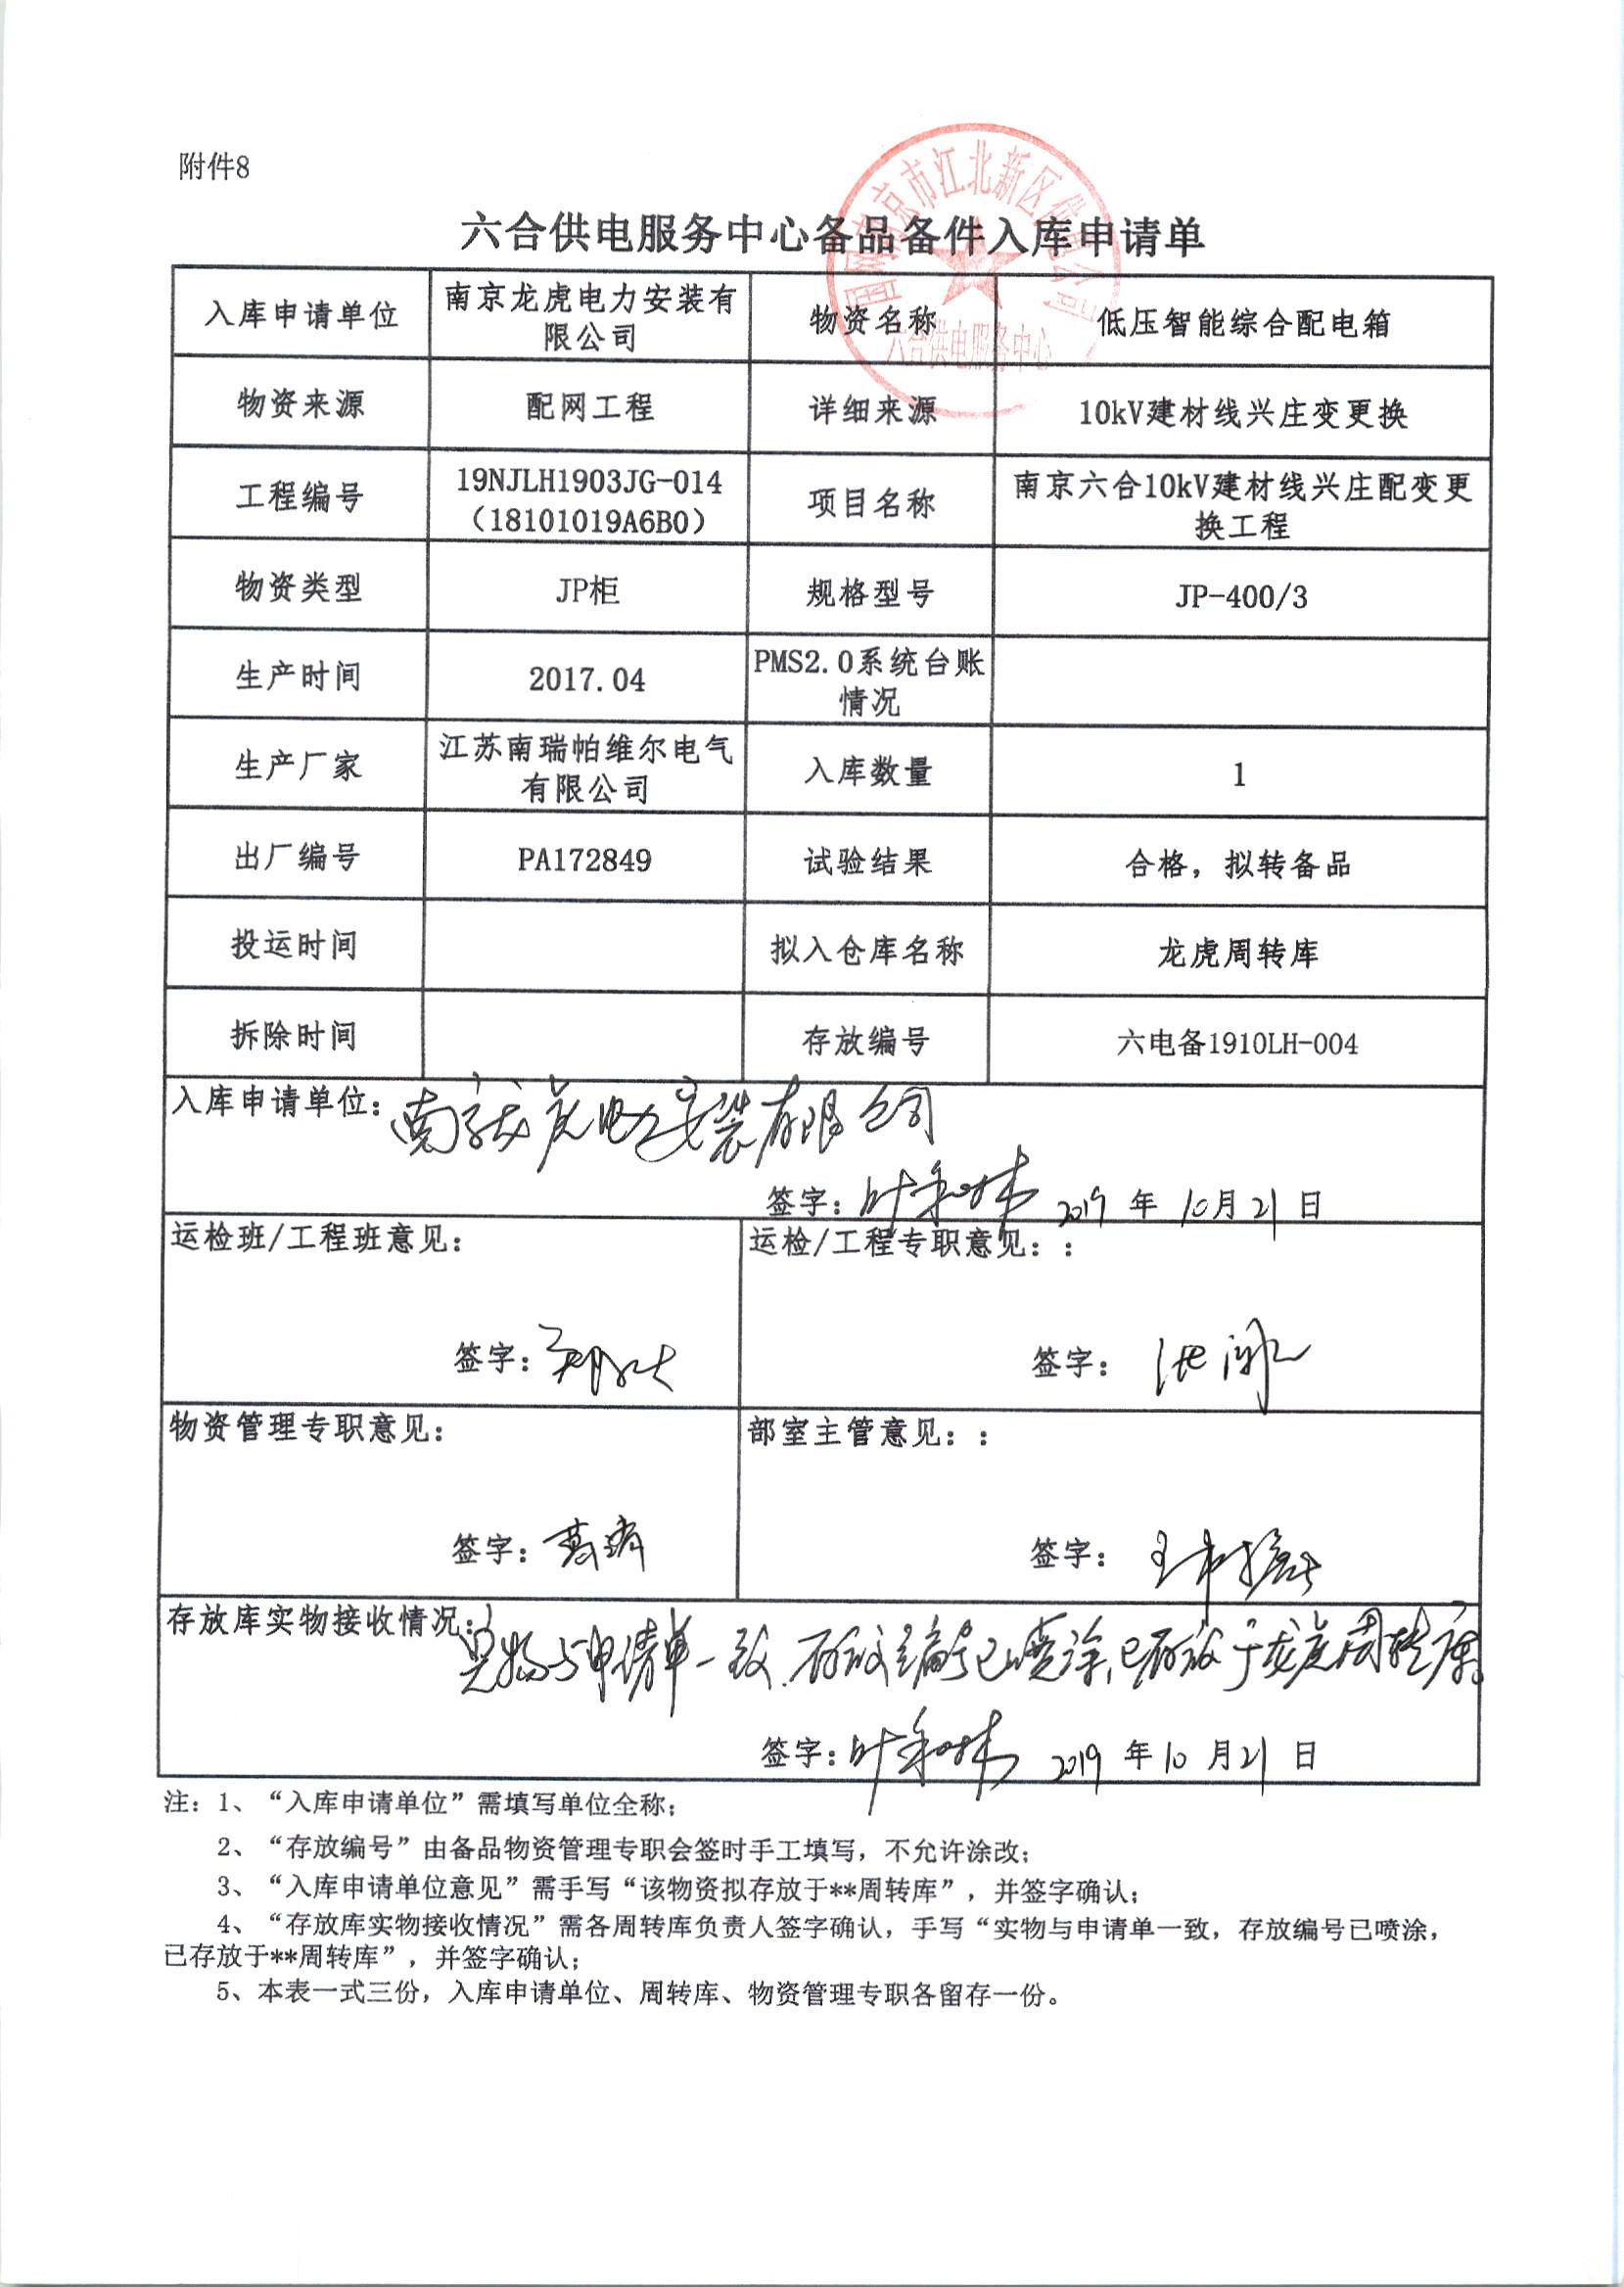 附件8
国网南京市江北新区供电公司
六合供电服务中心
六合供电服务中心备品备件入库申请单
入库申请单位 南京龙虎电力安装有限公司 物资名称 低压智能综合配电箱
物资来源 配网工程 详细来源 10kV建材线兴庄变更换
工程编号 19NJLH1903JG-014（18101019A6B0） 项目名称 南京六合10kV建材线兴庄配变更换工程
物资类型 JP柜 规格型号 JP-400/3
生产时间 2017.04 PMS2.0系统台账情况
生产厂家 江苏南瑞帕维尔电气有限公司 入库数量 1
出厂编号 PA172849 试验结果 合格，拟转备品
投运时间 拟入仓库名称 龙虎周转库
拆除时间 存放编号 六电备1910LH-004
入库申请单位：南京龙虎电力安装有限公司
签字： 2019 年 10月21日
运检班/工程班意见： 运检/工程专职意见：：
签字： 签字：
物资管理专职意见： 部室主管意见：：
签字： 签字：
存放库实物接收情况：实物与申请单一致，存放编号已喷涂，已存放于龙虎周转库。
签字： 2019 年10 月21 日
注：1、“入库申请单位”需填写单位全称；
2、“存放编号”由备品物资管理专职会签时手工填写，不允许涂改；
3、“入库申请单位意见”需手写“该物资拟存放于**周转库”，并签字确认；
4、“存放库实物接收情况”需各周转库负责人签字确认，手写“实物与申请单一致，存放编号已喷涂，
已存放于**周转库”，并签字确认；
5、本表一式三份，入库申请单位、周转库、物资管理专职各留存一份。